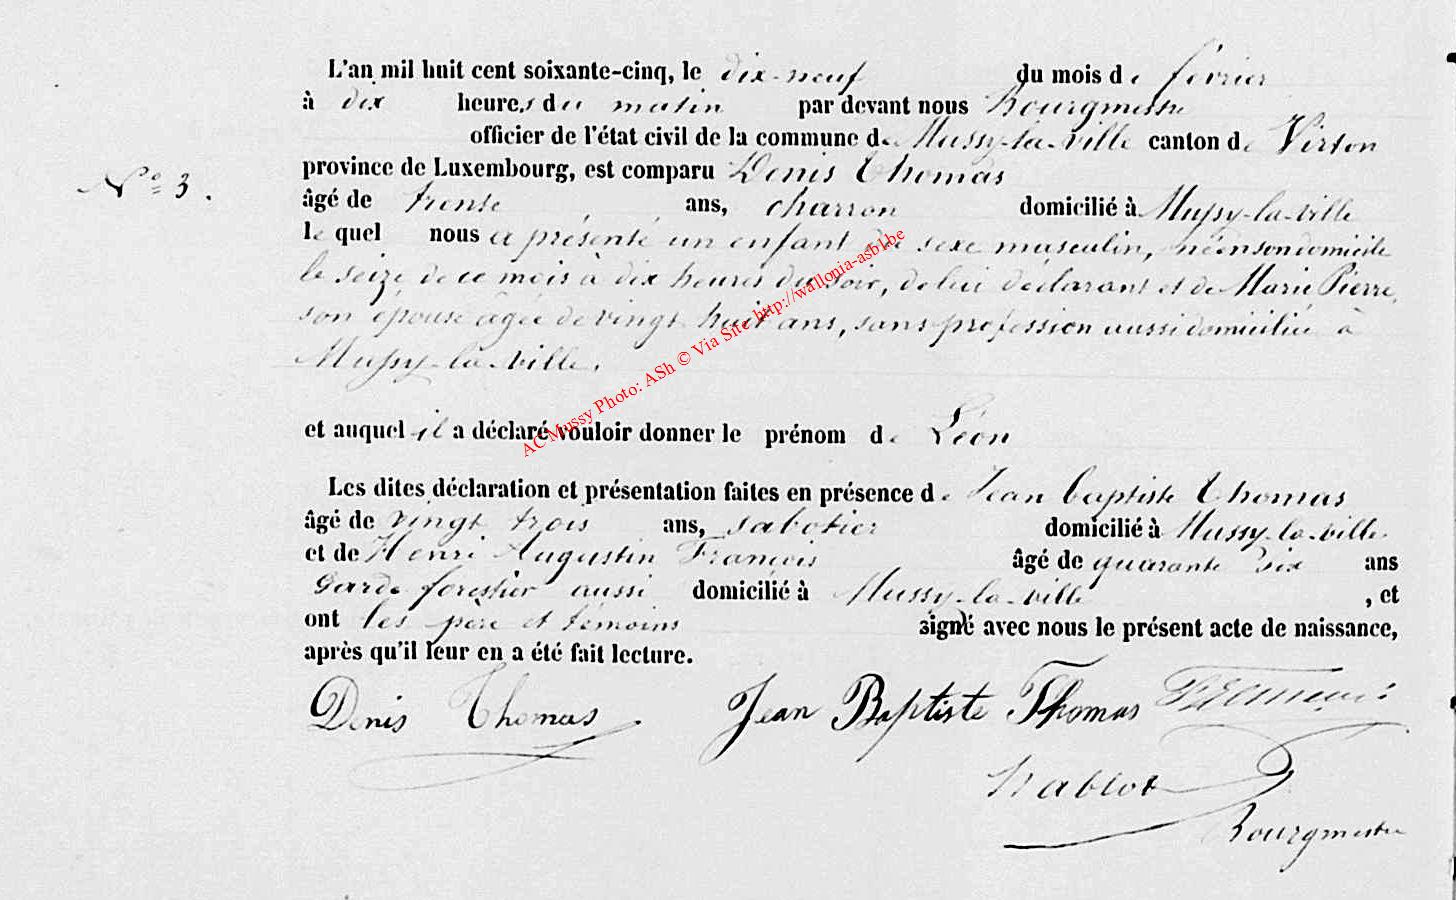 L'an mil huit cent soixante-cinq, le dix-neuf du mois de février
à dix heures du matin par devant nous Bourgmestre
officier de l'état civil de la commune de Mussy-la-ville canton de Virton
province de Luxembourg, est comparu Denis Thomas
N° 3.
âgé de trente ans, charron domicilié à Mussy-la-ville
le quel nous a présenté un enfant du sexe masculin, né en son domicile
le seize de ce mois à dix heures du soir, de lui déclarant et de Marie Pierre,
son épouse âgée de vingt huit ans, sans profession aussi domiciliée à
Mussy-la-ville.
AC Mussy Photo: ASh © Via Site http://wallonia-asbl.be
et auquel il a déclaré vouloir donner le prénom de Léon
Les dites déclaration et présentation faites en présence de Jean baptiste Thomas
âgé de vingt trois ans, sabotier domicilié à Mussy-la-ville
et de Henri Augustin François âgé de quarante six ans
Garde forestier aussi domicilié à Mussy-la-ville, et
ont les père et témoins signé avec nous le présent acte de naissance,
après qu'il leur en a été fait lecture.
Denis Thomas Jean Baptiste Thomas
Bourgmestre